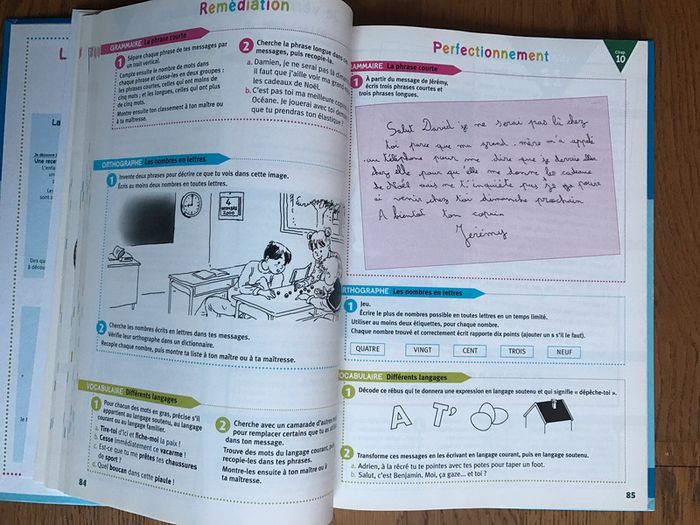 Remédiation
GRAMMAIRE La phrase courte
1 Sépare chaque phrase de tes messages par
un trait vertical.
Compte ensuite le nombre de mots dans
chaque phrase et classe-les en deux groupes :
les phrases courtes, celles qui ont moins de
cinq mots ; et les longues, celles qui ont plus
de cinq mots.
Montre ensuite ton classement à ton maître ou
à ta maîtresse.
2 Cherche la phrase longue dans
messages, puis recopie-la.
a. Damien, je ne serai pas là
il faut que j'aille voir ma
les cadeaux de Noël.
b. C'est pas toi ma meilleure
Océane. Je jouerai avec toi
que tu prendras ton élastique !
ORTHOGRAPHE Les nombres en lettres
1 Invente deux phrases pour décrire ce que tu vois dans cette image.
Écris au moins deux nombres en toutes lettres.
4
2 Cherche les nombres écrits en lettres dans tes messages.
Vérifie leur orthographe dans un dictionnaire.
Recopie chaque nombre, puis montre ta liste à ton maître ou à ta maîtresse.
VOCABULAIRE Différents langages
1 Pour chacun des mots en gras, précise s'il
appartient au langage soutenu, au langage
courant ou au langage familier.
a. Tire-toi d'ici et fiche-moi la paix !
b. Cesse immédiatement ce vacarme !
c. Est-ce que tu me prêtes tes chaussures
de sport ?
d. Quel boucan dans cette piaule !
2 Cherche avec un camarade d'autres
pour remplacer certains que tu
dans ton message.
Trouve des mots du langage courant, puis
recopie-les dans tes phrases.
Montre-les ensuite à ton maître ou à
ta maîtresse.
84
Perfectionnement
Chap
10
GRAMMAIRE La phrase courte
1 À partir du message de Jérémy,
écris trois phrases courtes et
trois phrases longues.
Salut David je ne serai pas là chez
toi parce que ma grand-mère m'a appelé
au téléphone pour me dire que je devais aller
chez elle pour qu'elle me donne les cadeaux
de Noël mais ne t'inquiète pas je
venir chez toi dimanche prochain
A bientôt ton copain
Jérémy
ORTHOGRAPHE Les nombres en lettres
1 Jeu.
Écrire le plus de nombres possible en toutes lettres en un temps limité.
Utiliser au moins deux étiquettes, pour chaque nombre.
Chaque nombre trouvé et correctement écrit rapporte dix points (ajouter un s s'il le faut).
QUATRE VINGT CENT TROIS NEUF
VOCABULAIRE Différents langages
1 Décode ce rébus qui te donnera une expression en langage soutenu et qui signifie « dépêche-toi ».
A T'
2 Transforme ces messages en les écrivant en langage courant, puis en langage soutenu.
a. Adrien, à la récré tu te pointes avec tes potes pour taper un foot.
b. Salut, c'est Benjamin. Moi, ça gaze... et toi ?
85